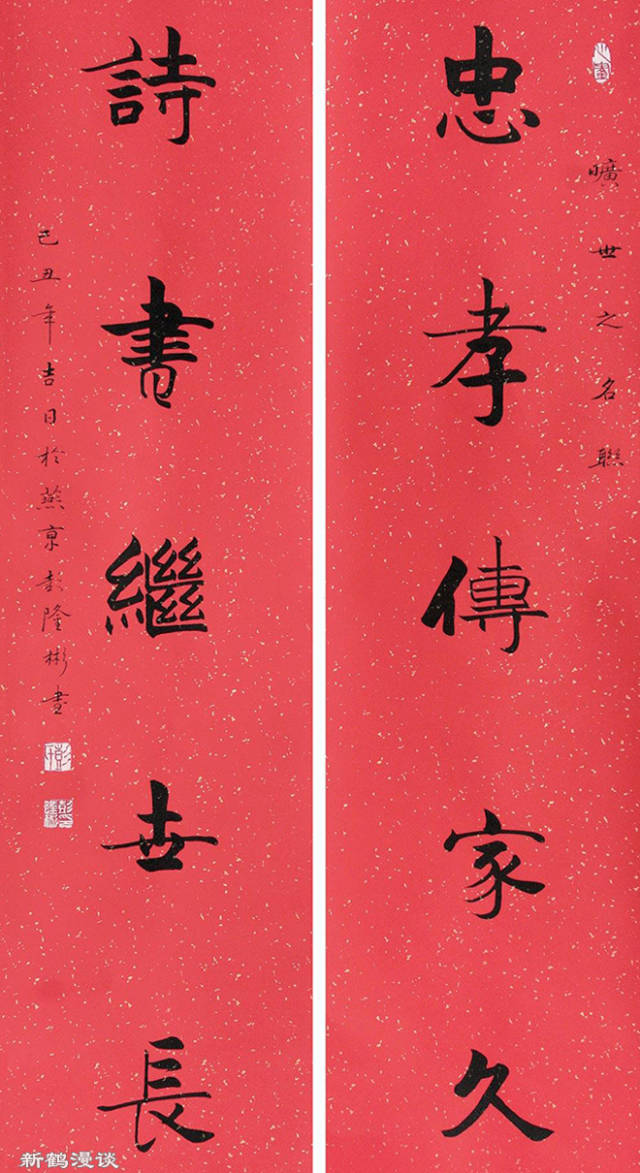 曠世之名聯
忠孝傳家久
詩書繼世長
己丑年吉日於燕京彭隆彬書
新鹤漫谈